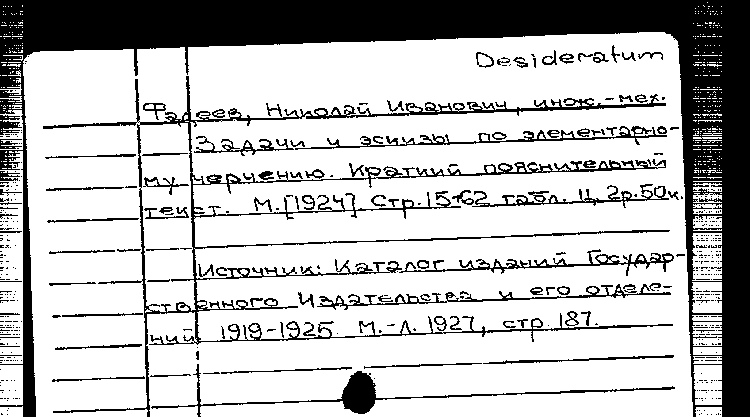 Desideratum
Фадеев, Николай Иванович, инж.-мех.
Задачи и эскизы по элементарно-
му черчению. Краткий пояснительный
текст. М.[1924] Стр.15+62 табл. Ц. 2р.50к.
Источник: Каталог изданий Государ-
ственного Издательства и его отделе-
ний 1919-1925 М.-Л. 1927, стр 187.